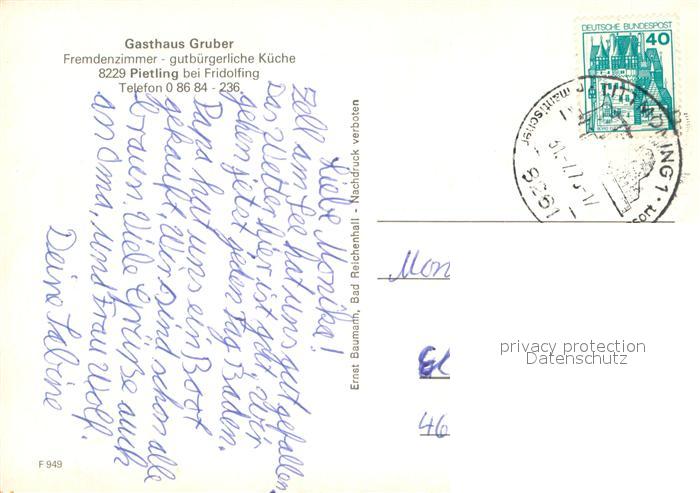 Gasthaus Gruber
Fremdenzimmer - gutbürgerliche Küche
8229 Pietling bei Fridolfing
Telefon 0 86 84 - 236
Liebe Monika!
Zell am See hat uns gut gefallen
Das Wetter hier ist gut, wir
gehen jetzt jeden Tag Baden.
Papa hat uns ein Boot
gekauft. Wir sind schon alle
braun. Viele Grüße auch
an Oma, und Frau Wolf.
Deine Sabine
F 949
Ernst Baumann, Bad Reichenhall - Nachdruck verboten
DEUTSCHE BUNDESPOST
40
TITTMONING 1
8261
Mon
El
46
privacy protection
Datenschutz